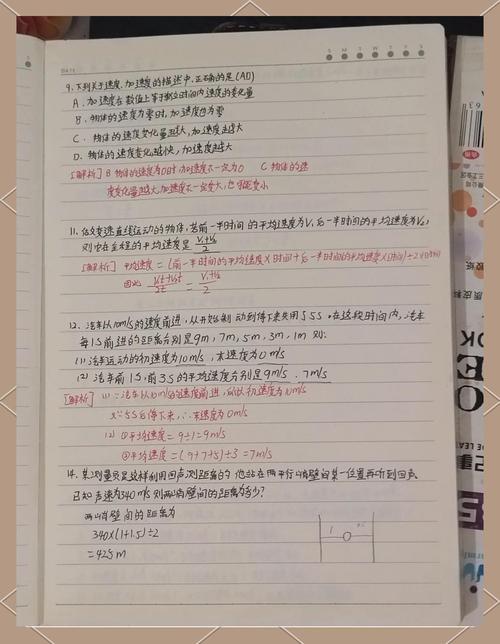 DATE
S M T W T F S
9.下列关于速度.加速度的描述中.正确的是(AD)
A.加速度在数值上等于单位时间内速度的变化量
B.物体的速度为零时,加速度也为零
C.物体的速度变化量越大,加速度越大
D.物体的速度变化越快,加速度越大
[解析] B物体的速度为0时,加速度不一定为0 C物体的速
度变化量越大,加速度不一定大,也可能变小
11.做变速直线运动的物体,若前一半时间的平均速度为V₁后一半时间的平均速度为V₂,
则它在全程的平均速度是 V₁+V₂/2
[解析] 平均速度=(前一半时间的平均速度×时间+后一半时间的平均速度×时间)÷2
因此 V₁t+V₂t/2t = V₁+V₂/2
12.汽车以10m/s的速度前进,从开始制动到停下来共用了5S.在这段时间内,汽车
每1S前进的距离分别是9m,7m,5m,3m,1m 则:
(1)汽车运动的初速度为10m/s,末速度为0m/s
(2)汽车前1S,前3S的平均速度分别是9m/s.7m/s
[解析] (1)∵汽车以10m/s的速度前进,所以初速度为10m/s
又∵5S后停下来,∴末速度为0m/s
(2) ①平均速度=9÷1=9m/s
②平均速度=(9+7+5)÷3=7m/s
14.某测量员是这样利用回声测距离的:他站在两平行峭壁间某一位置再听到回声
已知声速为340m/s则两峭壁间的距离为多少?
两峭壁间的距离为
340×(1+1.5)÷2
=425m
1